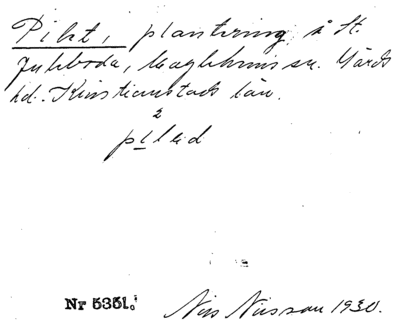 Pilet, plantering å St.
Juleboda, Maglehems sn. Gärds
hd. Kristianstads län.
Nr 5351.
Nils Nilsson 1930.